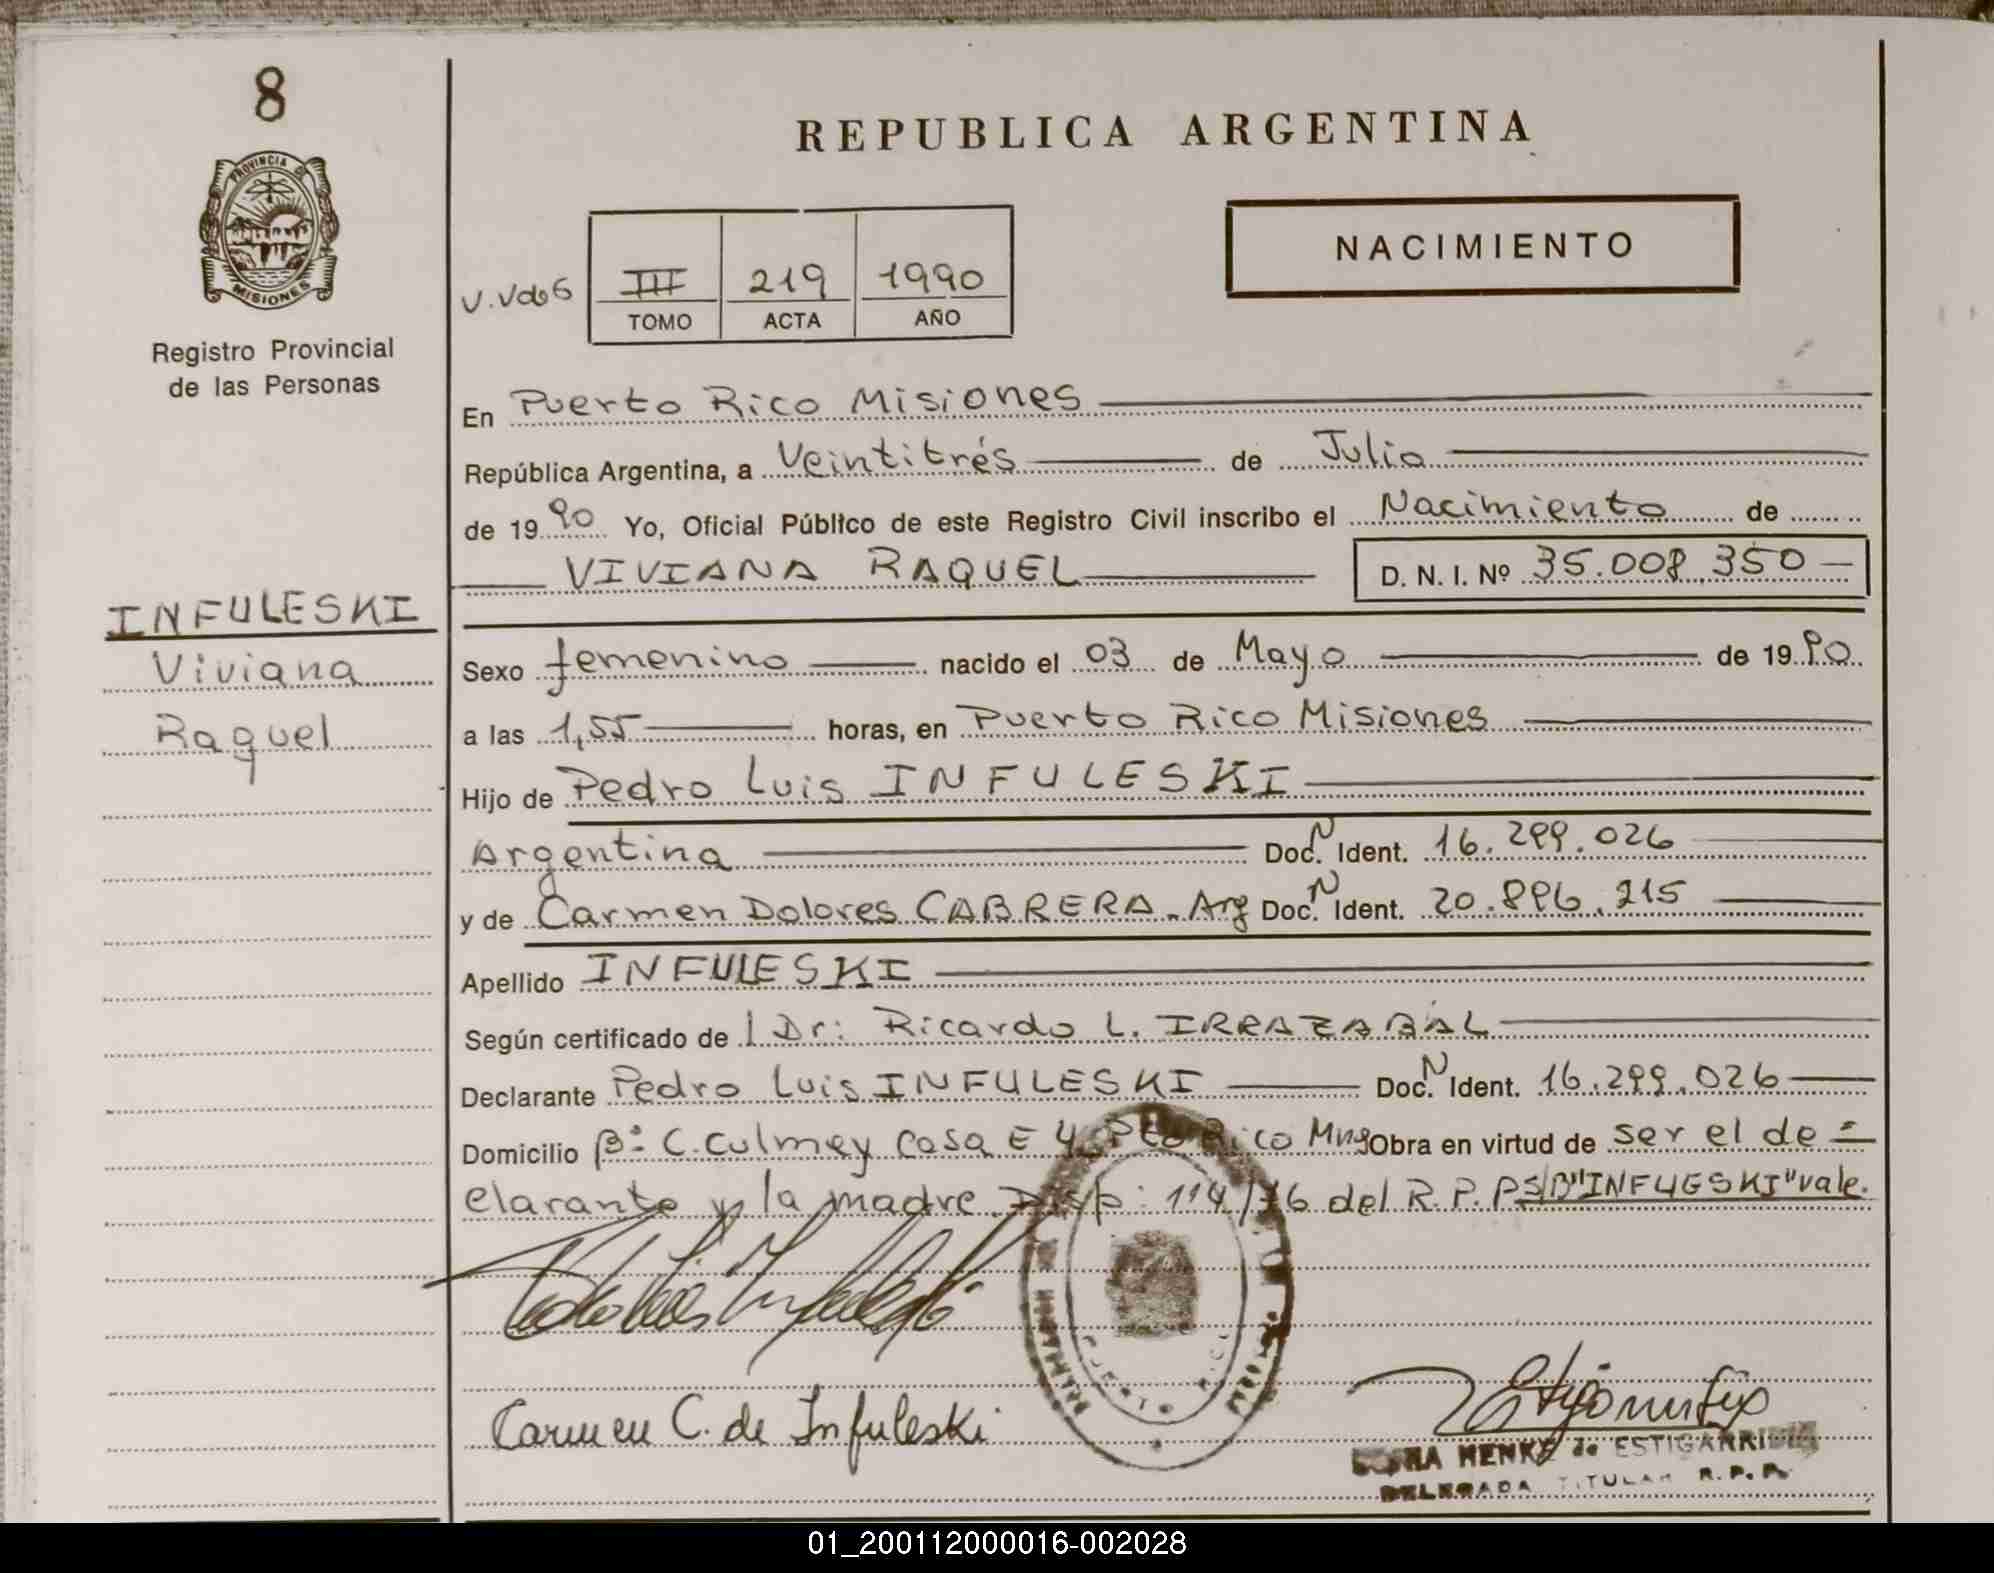 8
PROVINCIA DE
MISIONES
Registro Provincial
de las Personas
INFULESKI
Viviana
Raquel
REPUBLICA ARGENTINA
NACIMIENTO
III 219 1990
TOMO ACTA AÑO
En Puerto Rico Misiones
República Argentina, a Veintitrés de Julio
de 1990 Yo, Oficial Público de este Registro Civil inscribo el Nacimiento de
VIVIANA RAQUEL D. N. I. Nº 35.008.350
Sexo femenino nacido el 03 de Mayo de 1990
a las 1,55 horas, en Puerto Rico Misiones
Hijo de Pedro Luis INFULESKI
Argentina Doc. N Ident. 16.299.026
y de Carmen Dolores CABRERA. Arg Doc. N Ident. 20.896.215
Apellido INFULESKI
Según certificado de l Dr: Ricardo L. IRRAZABAL
Declarante Pedro Luis INFULESKI Doc. N Ident. 16.299.026
Domicilio Bº C. Culmey Casa E 4 Pto Rico Mns Obra en virtud de ser el de=
clarante y la madre. Disp: 114/76 del R. P. P S/B "INFULESKI" vale.
Carmen C. de Infuleski
HENKE de ESTIGARRIBIA
DELEGADA TITULAR R. P. P.
01_200112000016-002028